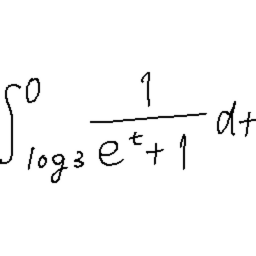 ∫_{log 3}^{0} \frac{1}{e^t+1} dt